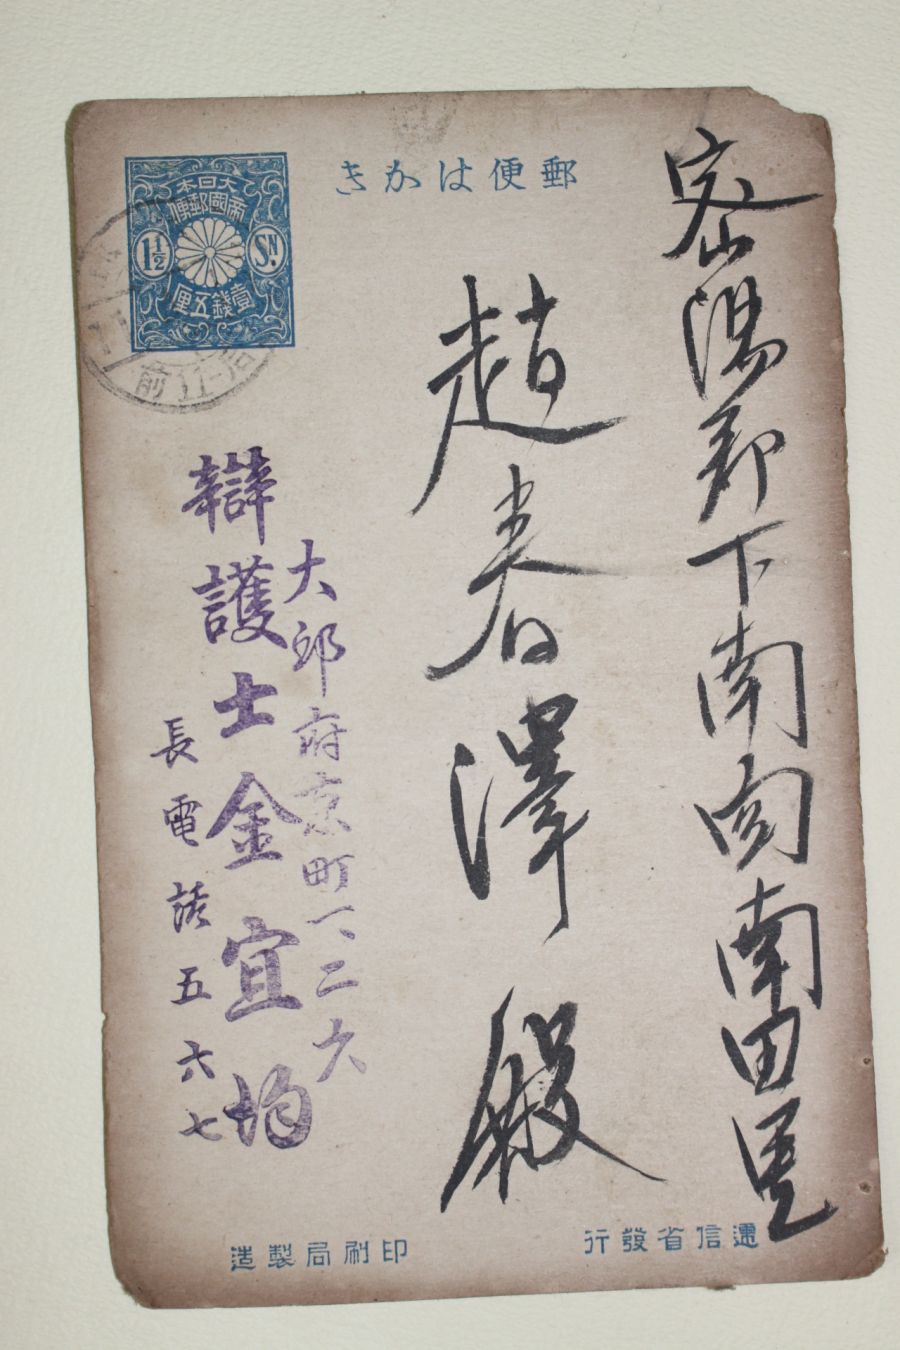 郵便はかき
大日本
帝國郵便
1½
SN.
壹錢五厘
密陽郡下南面南田里
趙春澤殿
大邱府京町一、二六
辯護士金宜均
長電話五六七
遞信省發行
印刷局製造